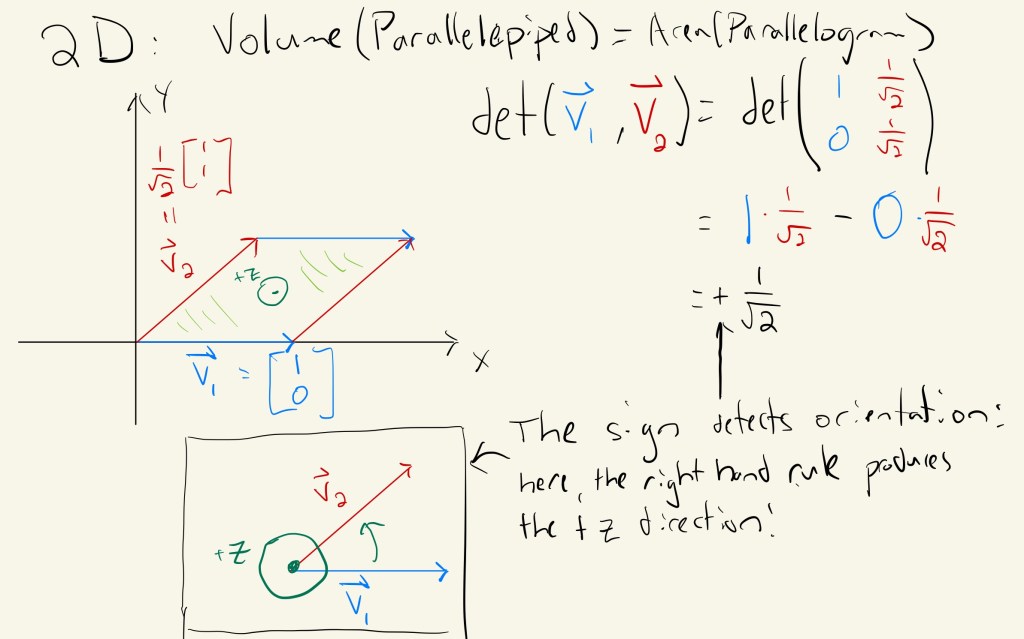 2D: Volume(Parallelepiped) = Area(Parallelogram)
Y
1/√2 [1 1]
=
v⃗₂
+z
v⃗₁ = [1 0]
X
det(v⃗₁, v⃗₂) = det(1 1/√2
0 1/√2)
= 1 · 1/√2 - 0 · 1/√2
= + 1/√2
The sign detects orientation:
here, the right hand rule produces
the +z direction!
v⃗₂
+z
v⃗₁